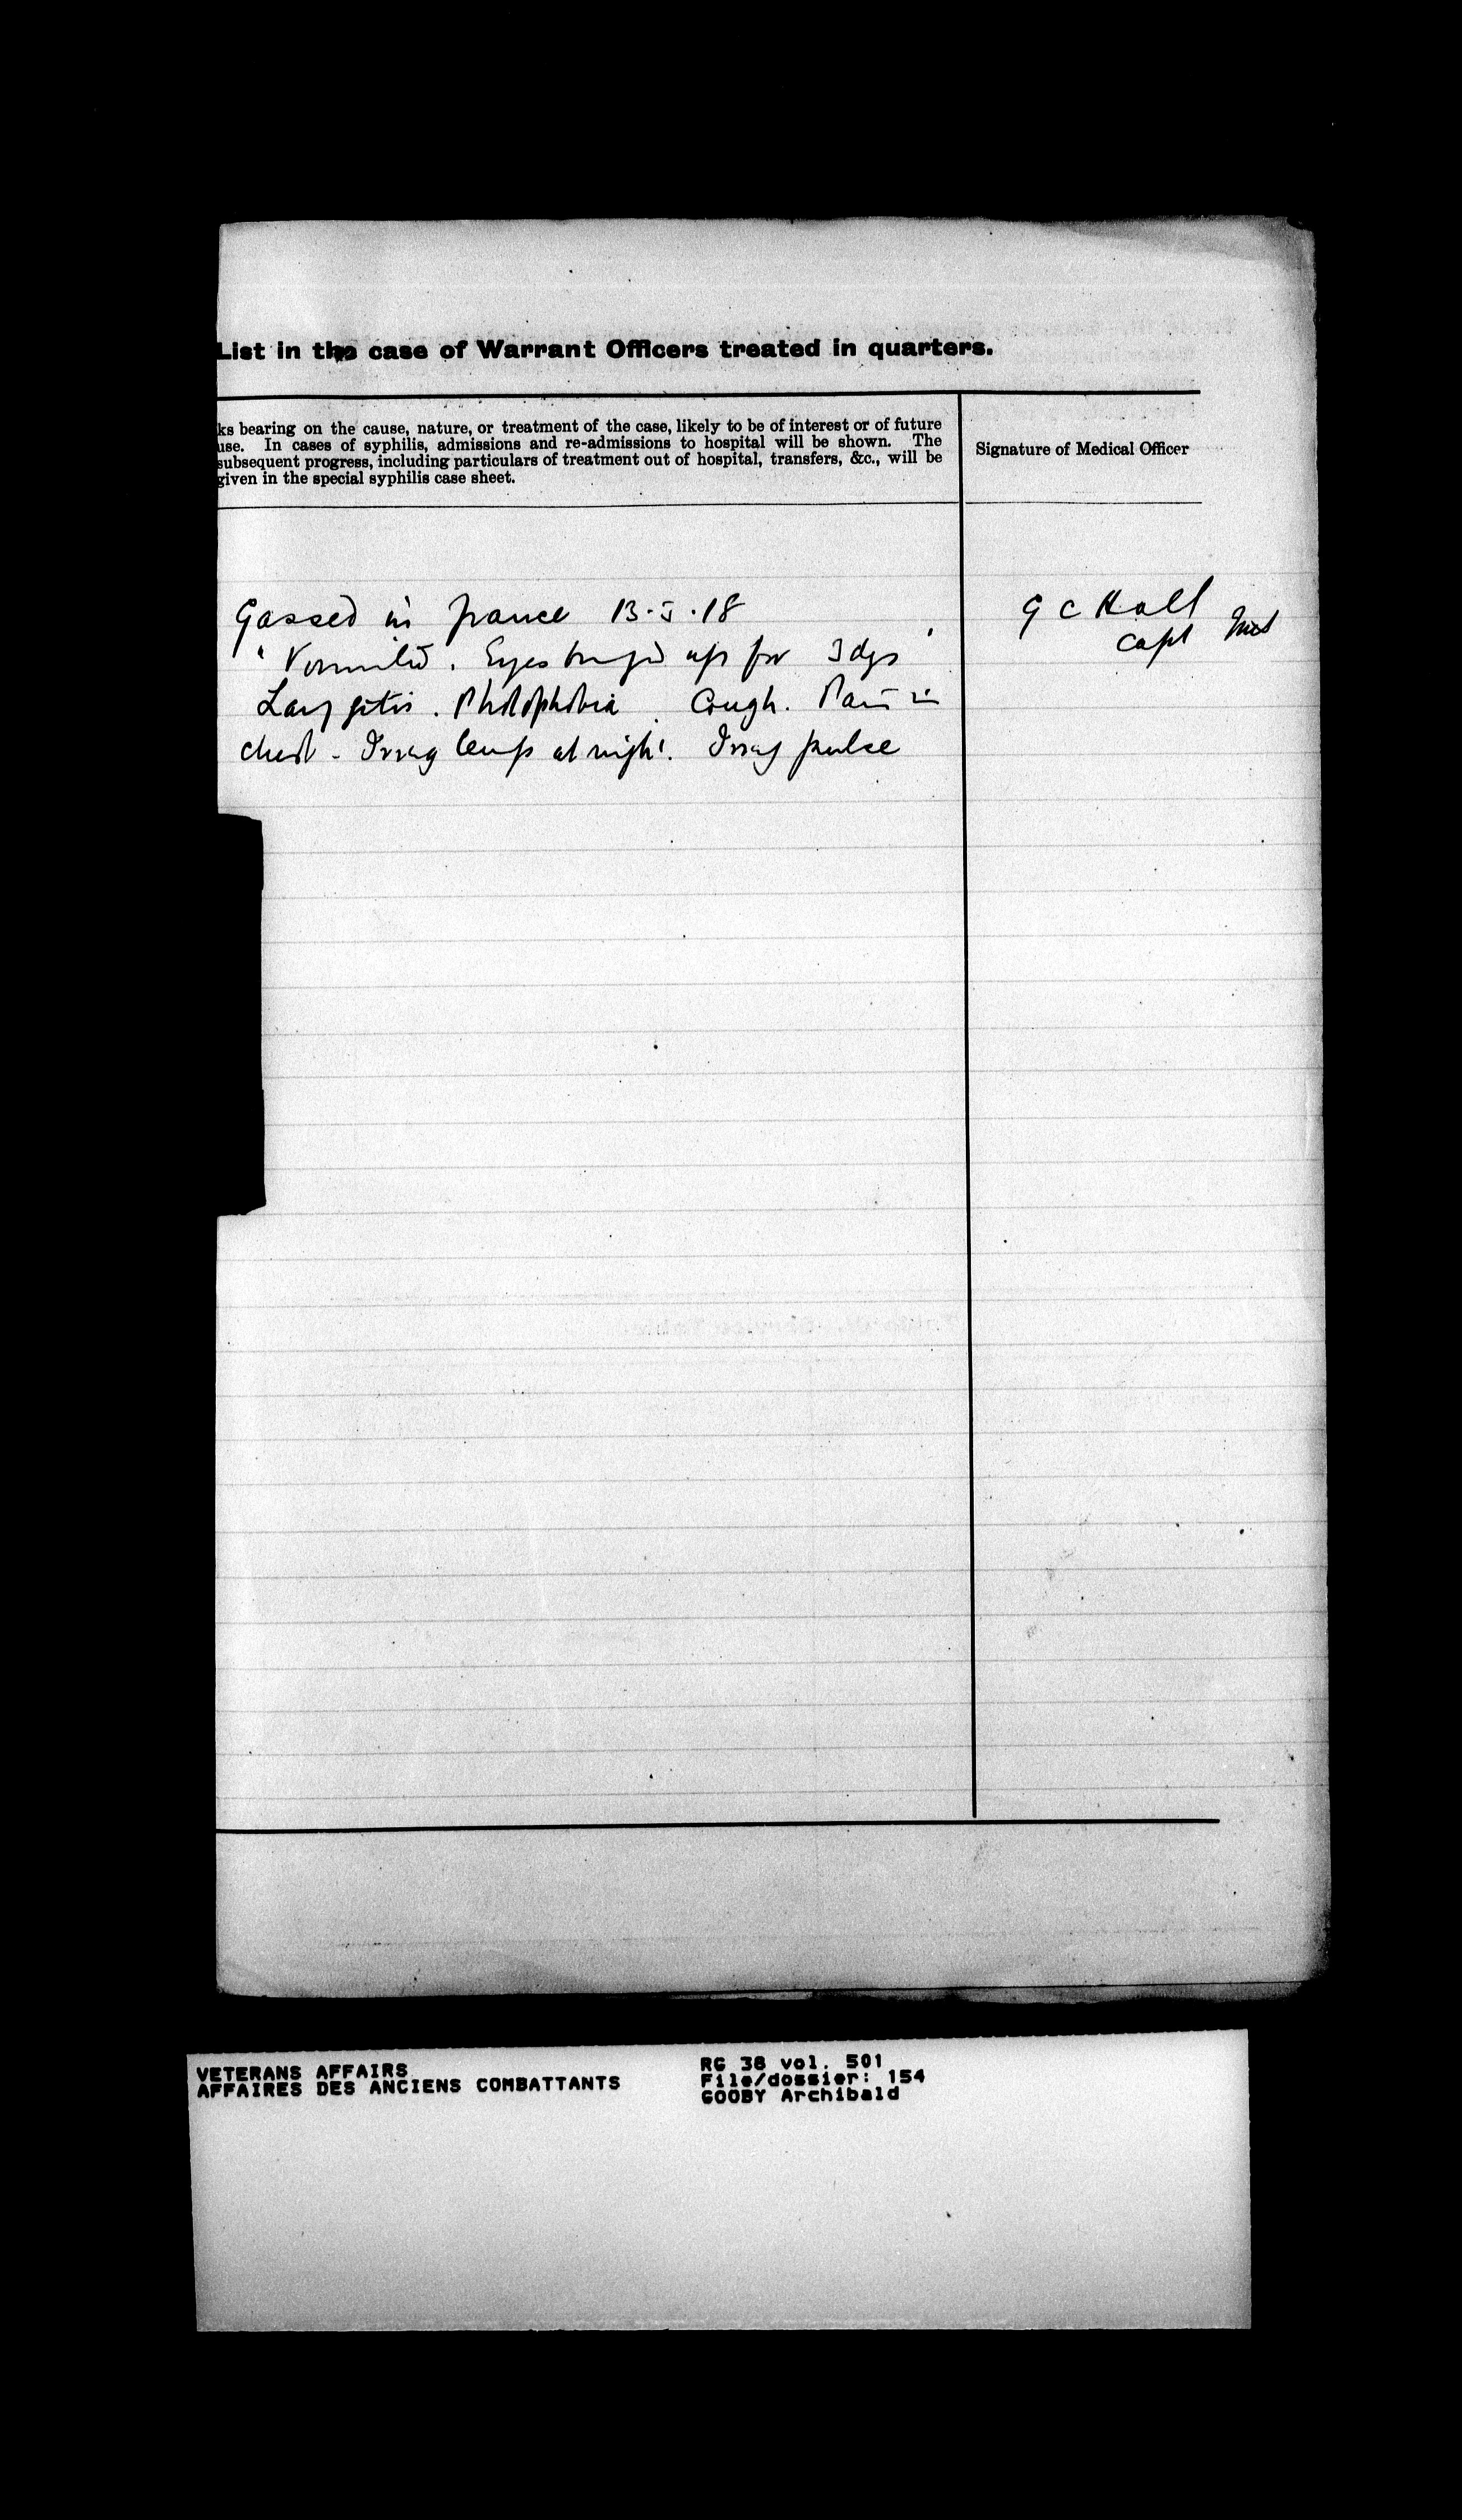 List in the case of Warrant Officers treated in quarters.
ks bearing on the cause, nature, or treatment of the case, likely to be of interest or of future
use. In cases of syphilis, admissions and re-admissions to hospital will be shown. The
subsequent progress, including particulars of treatment out of hospital, transfers, &c., will be
given in the special syphilis case sheet.
Signature of Medical Officer
Gassed in France 13.5.18
Vomited. Eyes up for 3 dys
Laryngitis. Photophobia. Cough. Pain in
chest - Irreg temp at night. Irreg pulse
G C Hall
Capt
VETERANS AFFAIRS
AFFAIRES DES ANCIENS COMBATTANTS
RG 38 vol. 501
File/dossier: 154
GOOBY Archibald